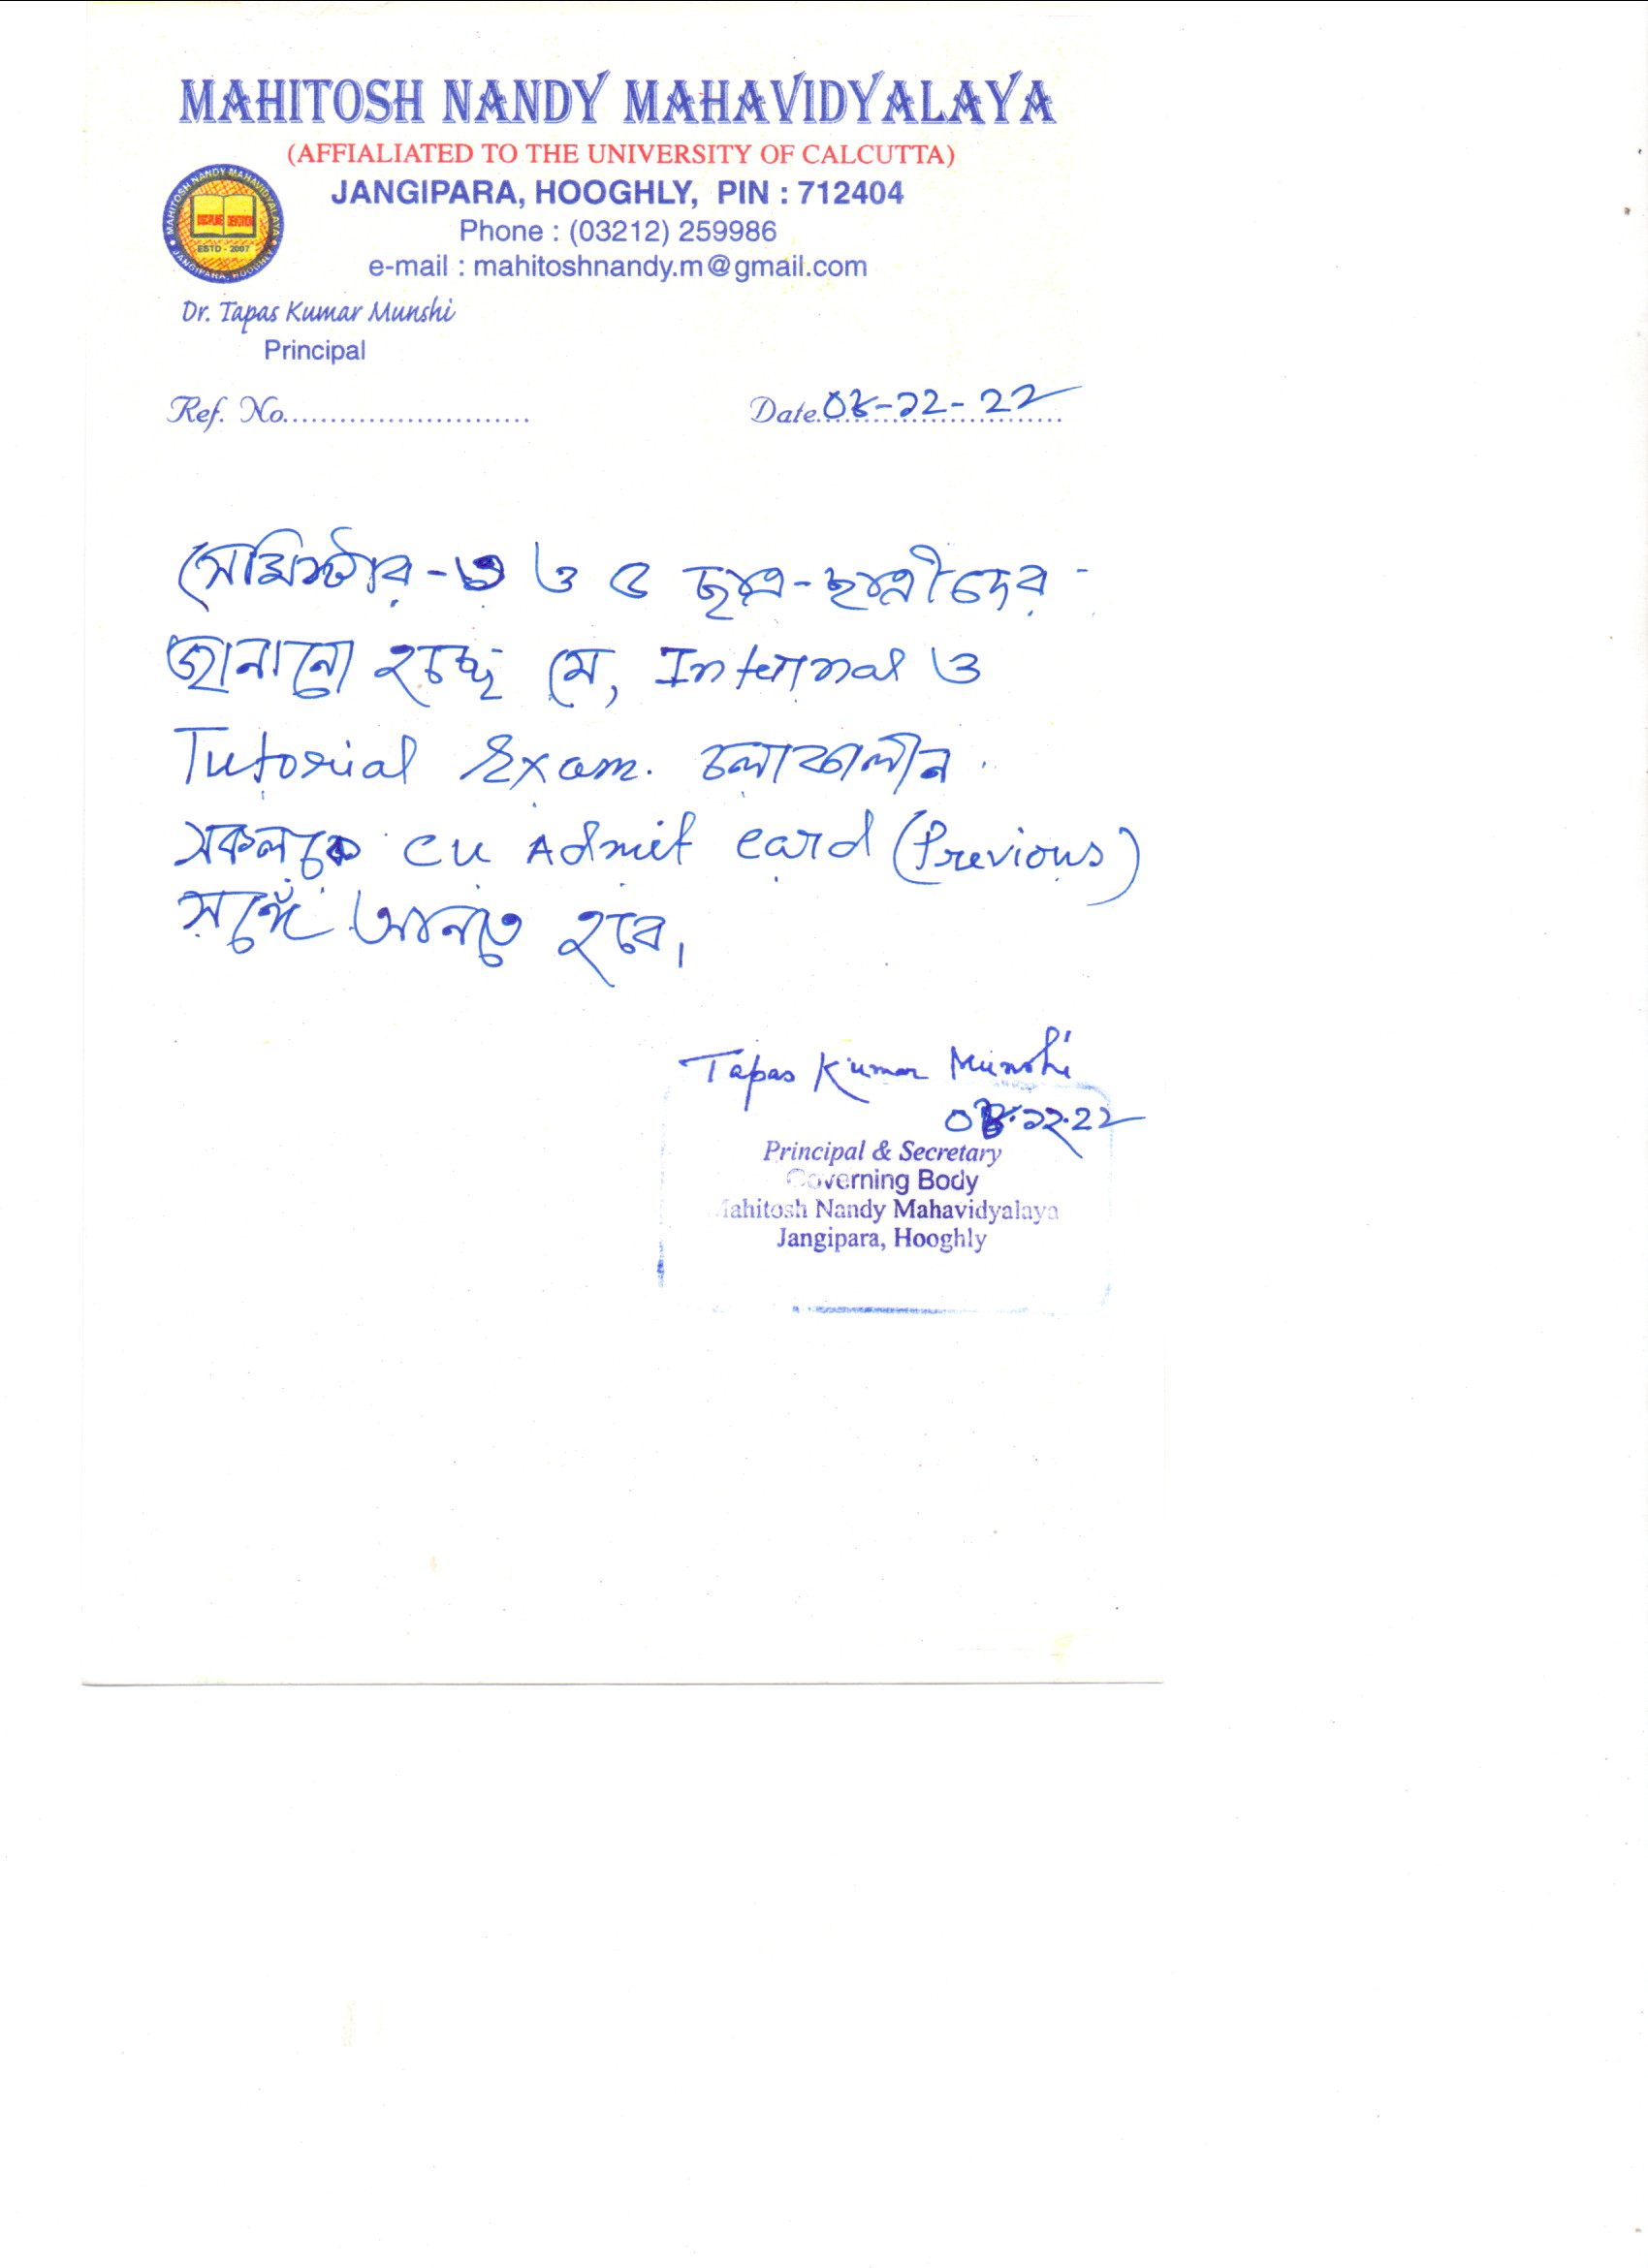 MAHITOSH NANDY MAHAVIDYALAYA
(AFFIALIATED TO THE UNIVERSITY OF CALCUTTA)
JANGIPARA, HOOGHLY, PIN : 712404
Phone : (03212) 259986
e-mail : mahitoshnandy.m@gmail.com
MAHITOSH NANDY MAHAVIDYALAYA
DISCIPLINE DEVOTION
ESTD - 2007
JANGIPARA, HOOGHLY
Dr. Tapas Kumar Munshi
Principal
Ref. No..........................
Date
সেমিস্টার-৩ ও ৫ ছাত্র-ছাত্রীদের
জানানো হচ্ছে যে, Internal ও
Tutorial Exam. চলাকালীন
সকলকে CU Admit card (Previous)
সঙ্গে আনতে হবে।
Tapas Kumar Munshi
Principal & Secretary
Governing Body
Mahitosh Nandy Mahavidyalaya
Jangipara, Hooghly